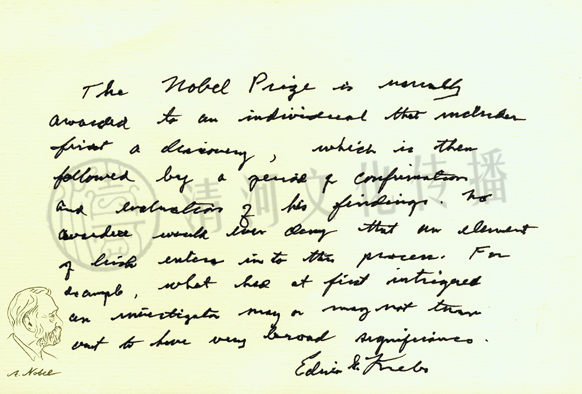 The Nobel Prize is usually
awarded to an individual that
first a discovery, which is then
followed by a period of confirmation
and evaluation of his findings. No
awardee would ever deny that an element
of luck enters into this process. For
example, what had at first intrigued
an investigator may or may not turn
out to have very broad significance.
Edwin G. Krebs
A. Nobel
清河文化传播